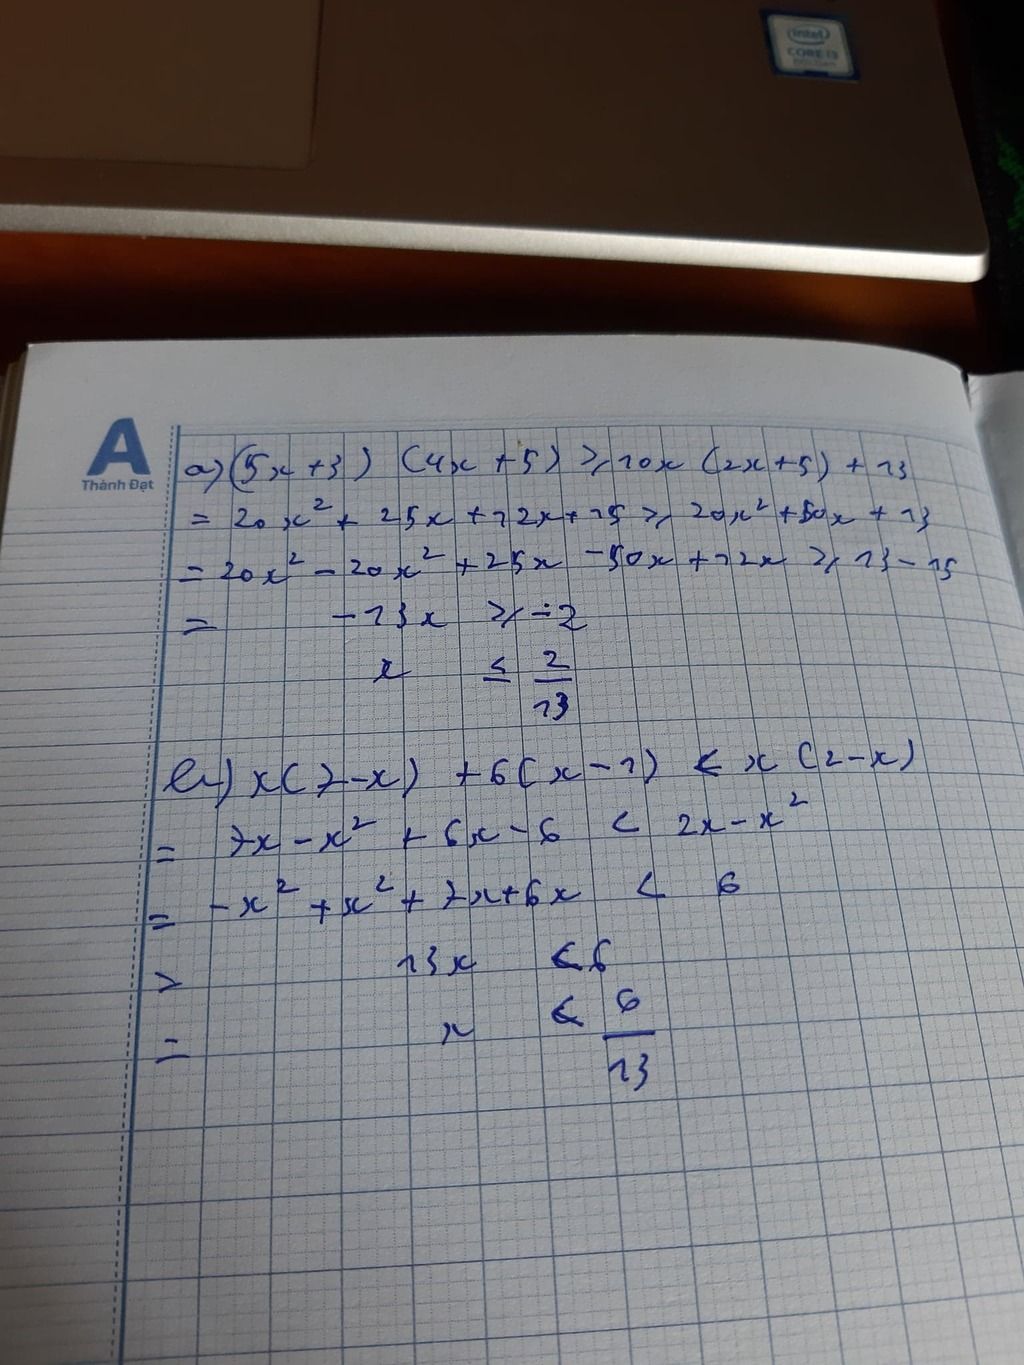 intel
CORE i3
A
Thành Đạt
a) (5x+3) (4x+5) ≥ 10x (2x+5) + 13
= 20x² + 25x + 12x + 15 ≥ 20x² + 50x + 13
= 20x² - 20x² + 25x - 50x + 12x ≥ 13 - 15
= -13x ≥ -2
x ≤ 2/13
b) x(7-x) + 6(x-1) < x (2-x)
= 7x - x² + 6x - 6 < 2x - x²
= -x² + x² + 7x + 6x < 6
> 13x < 6
= x < 6/13